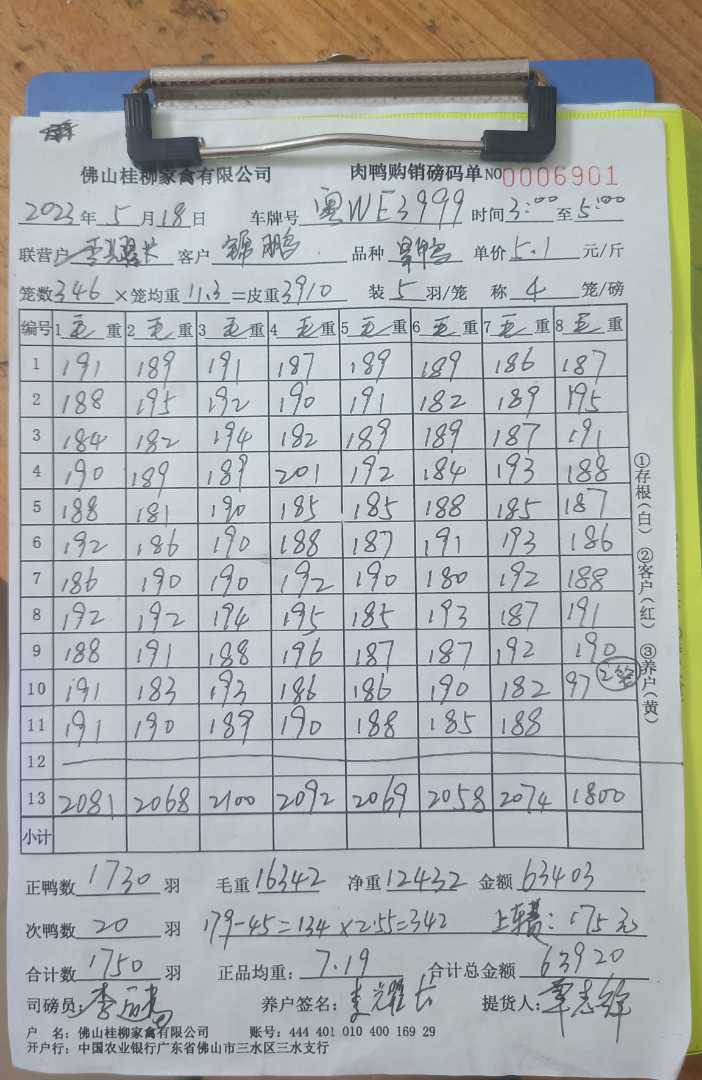 佛山桂柳家禽有限公司 肉鸭购销磅码单 NO 0006901
2023年5月18日 车牌号 粤WE3999 时间3:00至5:00
联营户 李耀长 客户 锦鹏 品种 单价5.1元/斤
笼数346×笼均重11.3=皮重3910 装5羽/笼 称4笼/磅
编号 1毛重 2毛重 3毛重 4毛重 5毛重 6毛重 7毛重 8毛重
1 191 189 191 187 189 189 186 187
2 188 195 192 190 191 182 189 195
3 184 182 194 182 189 189 187 191
4 190 189 189 201 192 184 193 188
5 188 181 190 185 185 188 185 187
6 192 186 190 188 187 191 193 186
7 186 190 190 192 190 180 192 188
8 192 192 194 195 185 193 187 191
9 188 191 188 196 187 187 192 190
10 191 183 193 186 186 190 182 97 2笼
11 191 190 189 190 188 185 188
12
13 2081 2068 2100 2092 2069 2058 2074 1800
小计
①存根(白) ②客户(红) ③养户(黄)
正鸭数1730羽 毛重16342 净重12432 金额63403
次鸭数20羽 179-45=134×2.55=342 上车费:175元
合计数1750羽 正品均重:7.19 合计总金额63920
司磅员: 养户签名:李耀长 提货人:覃志锋
户 名:佛山桂柳家禽有限公司 账号:444 401 010 400 169 29
开户行:中国农业银行广东省佛山市三水区三水支行